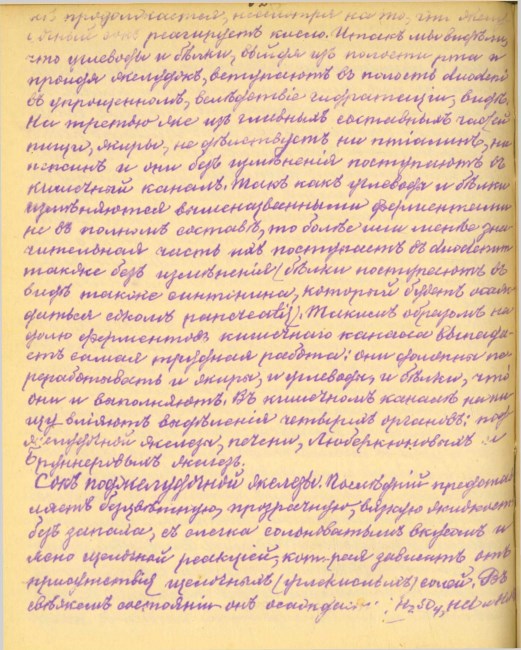 ихъ продолжается, несмотря на то, что желу-
дочный сокъ реагируетъ кисло. Итакъ мы видѣли,
что углеводы и бѣлки, выйдя изъ полости рта и
пройдя желудокъ, вступаютъ въ полость duodeni
въ упрощенномъ, вслѣдствіе гидратаціи, видѣ.
На третью же изъ главныхъ составныхъ частей
пищи, жиры, не дѣйствуетъ ни птіалинъ, ни
пепсинъ и они безъ измѣненія поступаютъ въ
кишечный каналъ. Такъ какъ углеводы и бѣлки
измѣняются вышеназванными ферментами
не въ полномъ составѣ, то болѣе или менѣе зна-
чительная часть ихъ поступаетъ въ duodenum
также безъ измѣненія (бѣлки поступаютъ въ
видѣ также синтонина, который будетъ осаж-
даться сокомъ pancreatis). Такимъ образомъ на
долю ферментовъ кишечнаго канала выпада-
етъ самая трудная работа: они должны пе-
реработывать и жиры, и углеводы, и бѣлки, что
они и выполняютъ. Въ кишечномъ каналѣ на пи-
щу вліяютъ выдѣленія четырехъ органовъ: под-
желудочной железы, печени, Либеркюновыхъ и
Бруннеровыхъ железъ.
Сокъ поджелудочной железы. Послѣдній представ-
ляетъ безцвѣтную, прозрачную, вязкую жидкость
безъ запаха, съ слегка солоноватымъ вкусомъ и
ясно щелочной реакціей, которая зависитъ отъ
присутствія щелочныхъ (углекислыхъ) солей. Въ
свѣжемъ состояніи онъ осаждается H₂SO₄, HCl и